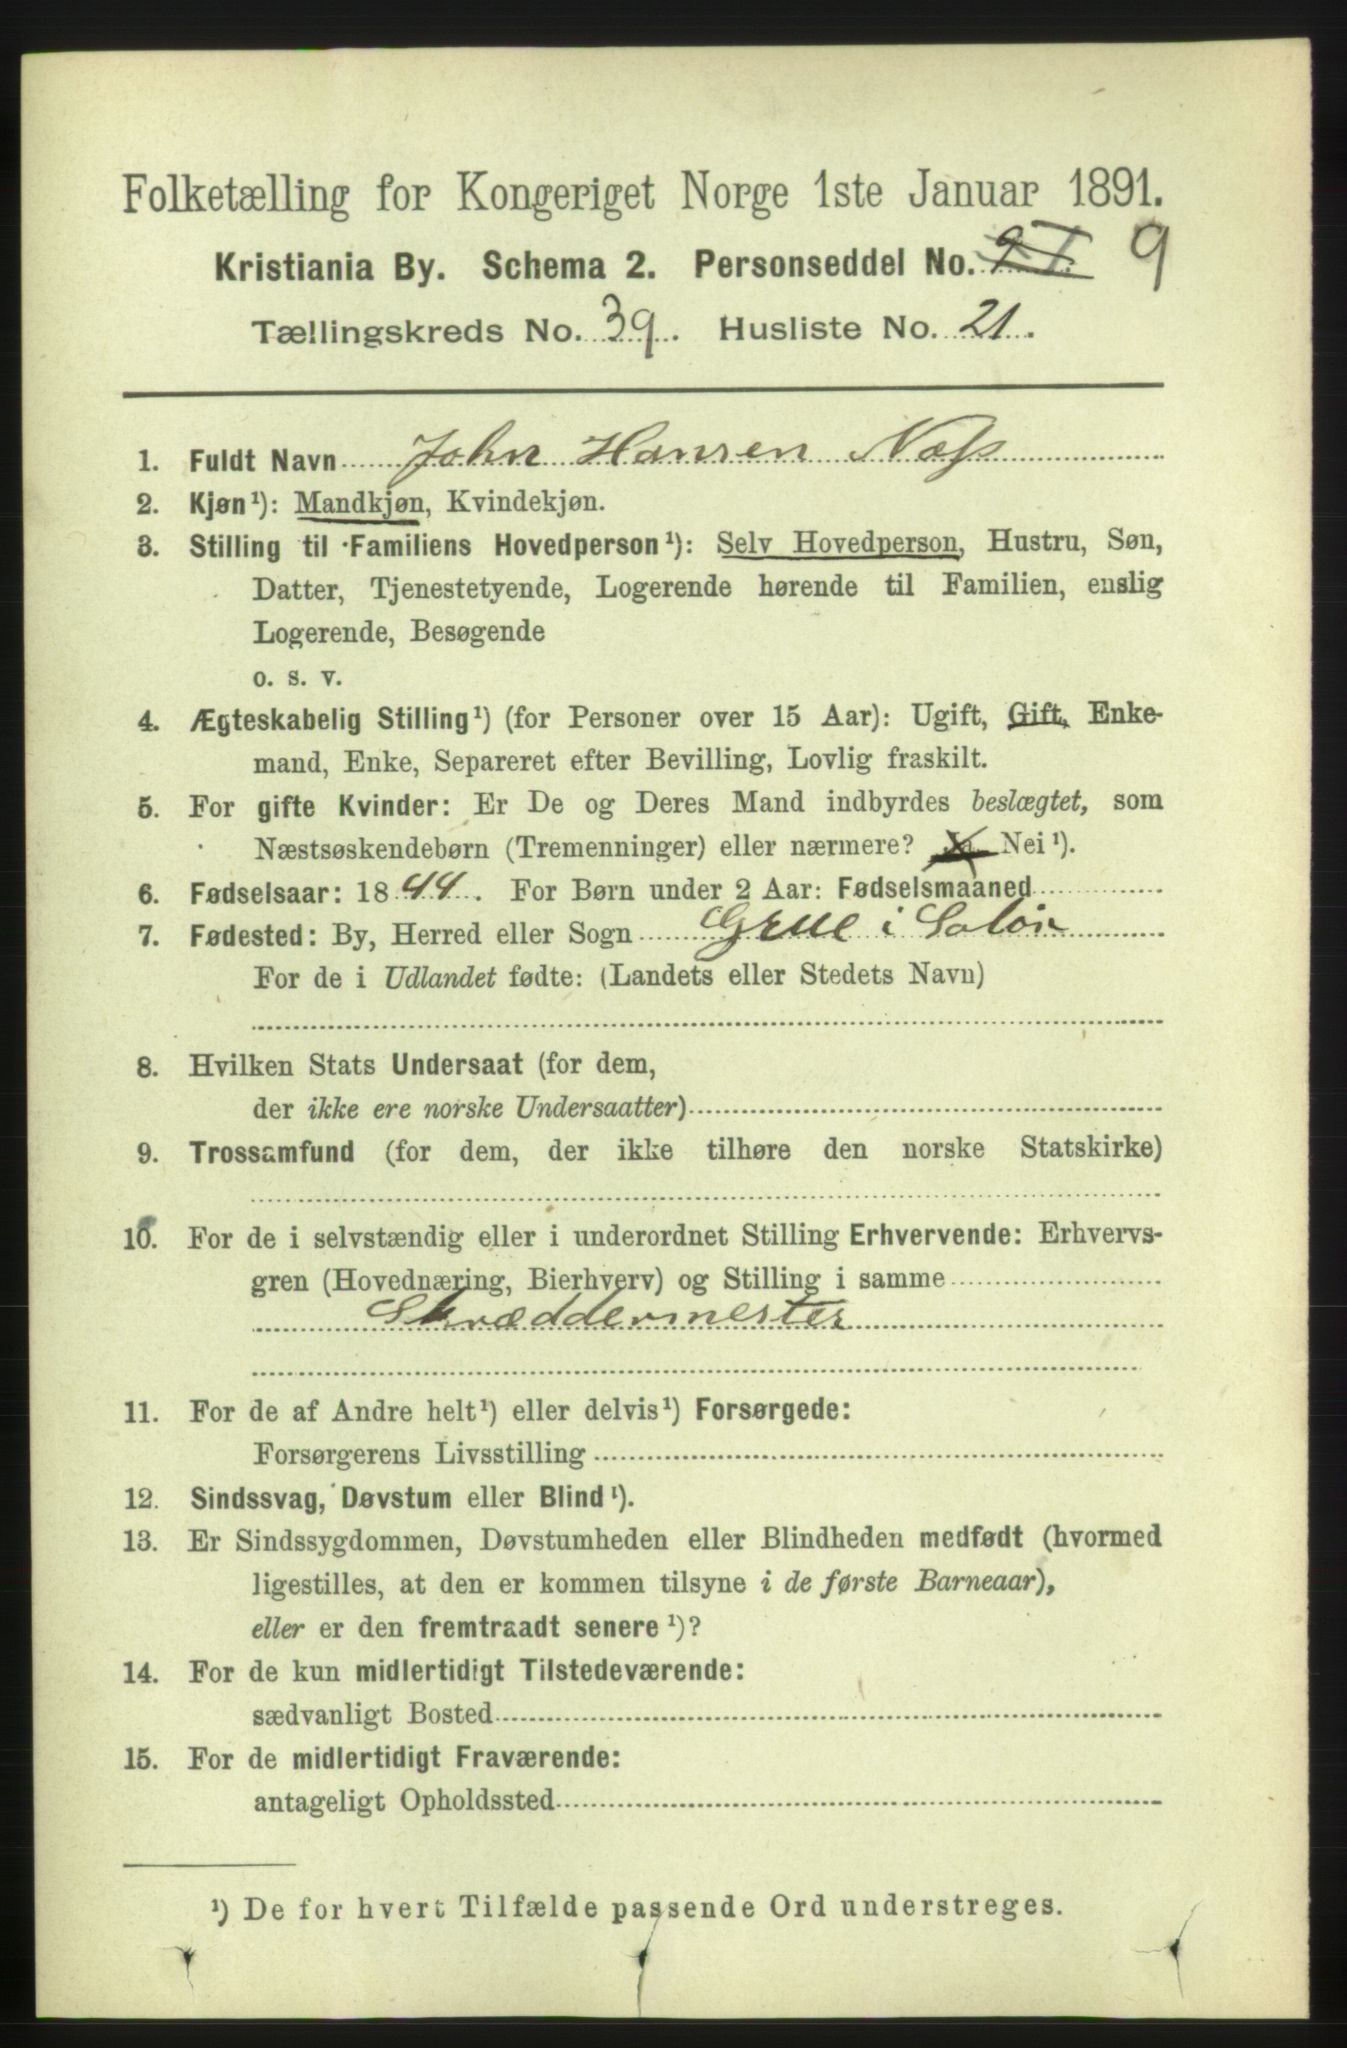 Folketælling for Kongeriget Norge 1ste Januar 1891.
Kristiania By. Schema 2. Personseddel No. 9
Tællingskreds No. 39. Husliste No. 21.
1. Fuldt Navn John Hansen Næss
2. Kjøn¹): Mandkjøn, Kvindekjøn.
3. Stilling til Familiens Hovedperson¹): Selv Hovedperson, Hustru, Søn,
Datter, Tjenestetyende, Logerende hørende til Familien, enslig
Logerende, Besøgende
o. s. v.
4. Ægteskabelig Stilling¹) (for Personer over 15 Aar): Ugift, Gift, Enke-
mand, Enke, Separeret efter Bevilling, Lovlig fraskilt.
5. For gifte Kvinder: Er De og Deres Mand indbyrdes beslægtet, som
Næstsøskendebørn (Tremenninger) eller nærmere? Ja Nei¹).
6. Fødselsaar: 1844. For Børn under 2 Aar: Fødselsmaaned
7. Fødested: By, Herred eller Sogn Grue i Solør
For de i Udlandet fødte: (Landets eller Stedets Navn)
8. Hvilken Stats Undersaat (for dem,
der ikke ere norske Undersaatter)
9. Trossamfund (for dem, der ikke tilhøre den norske Statskirke)
10. For de i selvstændig eller i underordnet Stilling Erhvervende: Erhvervs-
gren (Hovednæring, Bierhverv) og Stilling i samme
Skræddermester
11. For de af Andre helt¹) eller delvis¹) Forsørgede:
Forsørgerens Livsstilling
12. Sindssvag, Døvstum eller Blind¹).
13. Er Sindssygdommen, Døvstumheden eller Blindheden medfødt (hvormed
ligestilles, at den er kommen tilsyne i de første Barneaar),
eller er den fremtraadt senere¹)?
14. For de kun midlertidigt Tilstedeværende:
sædvanligt Bosted
15. For de midlertidigt Fraværende:
antageligt Opholdssted
¹) De for hvert Tilfælde passende Ord understreges.